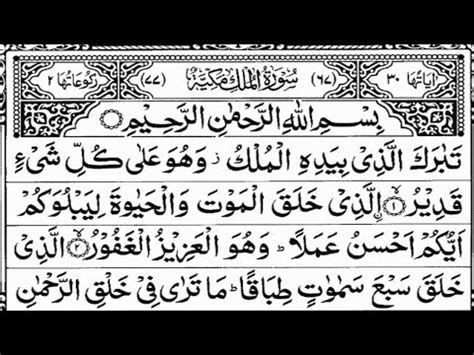 اٰيَاتُهَا ٣٠ (٦٧) سُوْرَةُ الْمُلْكِ مَكِّيَّةٌ (٧٧) رُكُوْعَاتُهَا ٢
بِسْمِ اللهِ الرَّحْمٰنِ الرَّحِيْمِ
تَبٰرَكَ الَّذِيْ بِيَدِهِ الْمُلْكُ ز وَهُوَ عَلٰى كُلِّ شَيْءٍ
قَدِيْرُ ۙ﴿١﴾ الَّذِيْ خَلَقَ الْمَوْتَ وَالْحَيٰوةَ لِيَبْلُوَكُمْ
اَيُّكُمْ اَحْسَنُ عَمَلًا ؕ وَهُوَ الْعَزِيْزُ الْغَفُوْرُ ۙ﴿٢﴾ الَّذِيْ
خَلَقَ سَبْعَ سَمٰوٰتٍ طِبَاقًا ؕ مَا تَرٰى فِيْ خَلْقِ الرَّحْمٰنِ